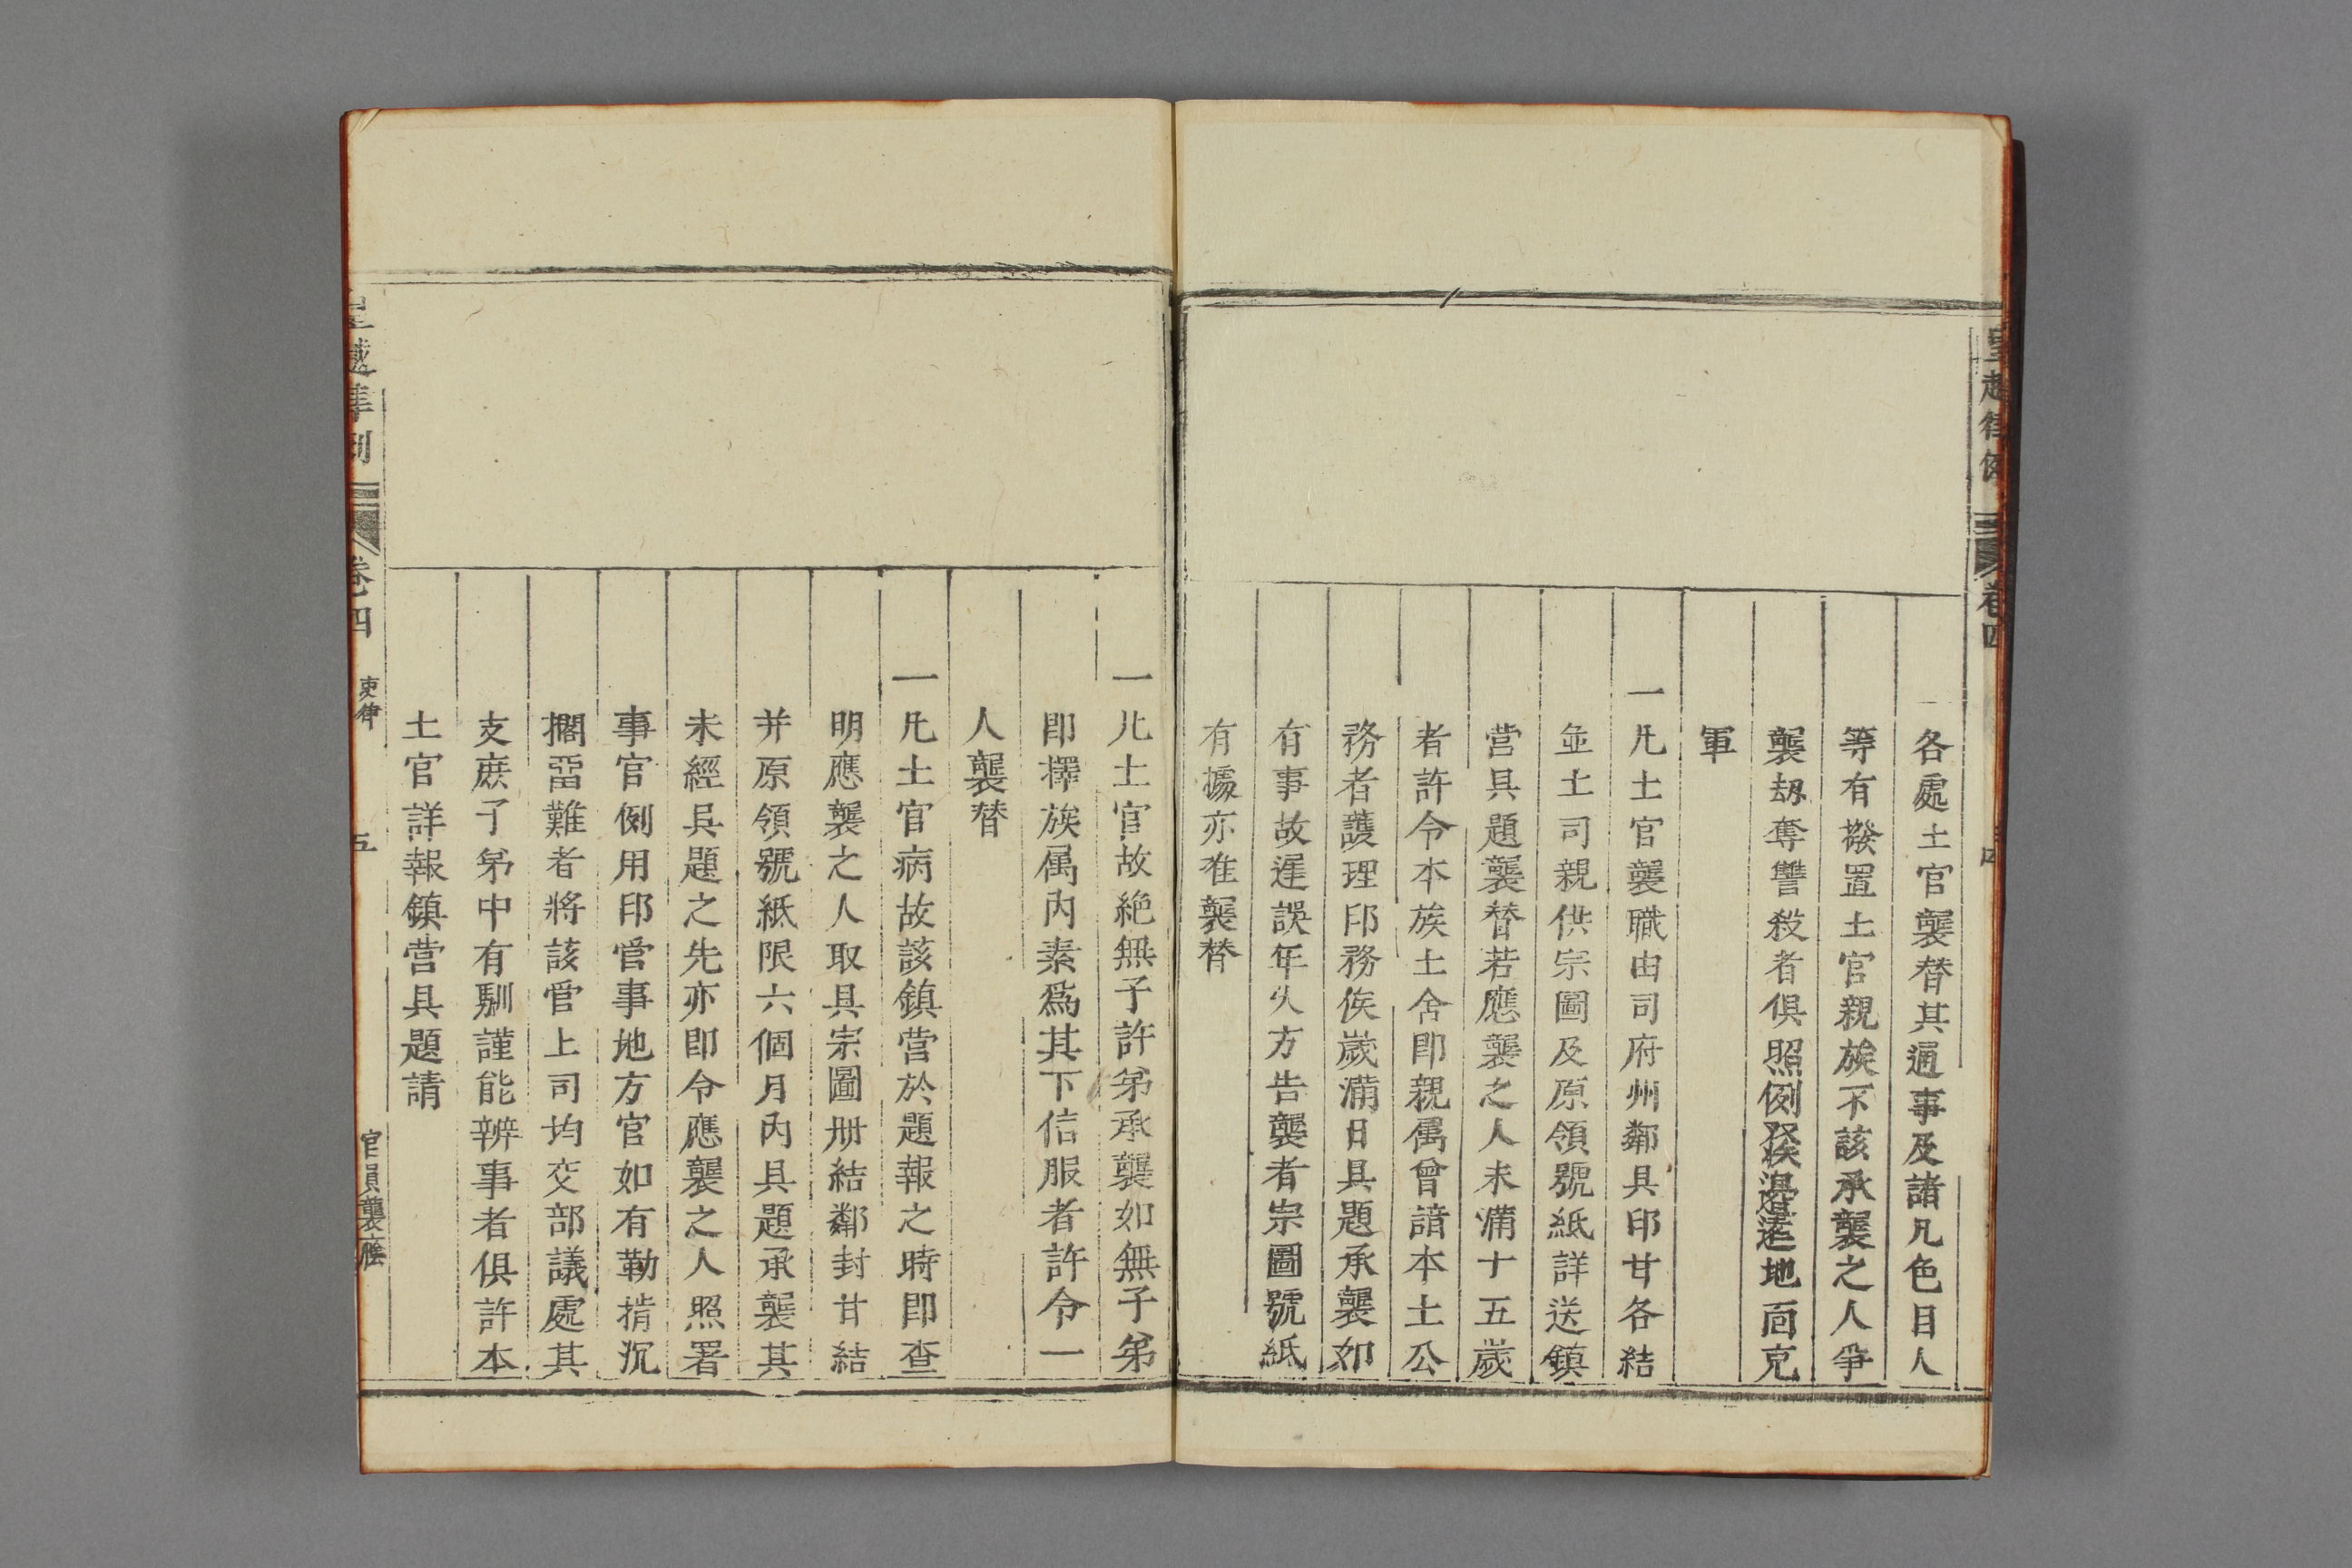 皇越律例
卷四
四
一各處土官襲替其通事及諸凡色目人
等有撥置土官親族不該承襲之人爭
襲刼奪讐殺者俱照例發邊遠地面充
軍
一凡土官襲職由司府州鄰具印甘各結
並土司親供宗圖及原領號紙詳送鎮
营具題襲替若應襲之人未滿十五歲
者許令本族土舍即親屬曾諳本土公
務者護理印務俟歲滿日具題承襲如
有事故遲誤年久方告襲者宗圖號紙
有據亦准襲替
一凡土官故絶無子許弟承襲如無子弟
即擇族属內素爲其下信服者許令一
人襲替
一凡土官病故該鎮营於題報之時即查
明應襲之人取具宗圖册結鄰封甘結
并原領號紙限六個月內具題承襲其
未經具題之先亦即令應襲之人照署
事官例用印官事地方官如有勒掯沉
擱畱難者將該管上司均交部議處其
支庶子弟中有馴謹能辨事者俱許本
土官詳報鎮营具題請
皇越律例
卷四
吏律
五
官員襲廕